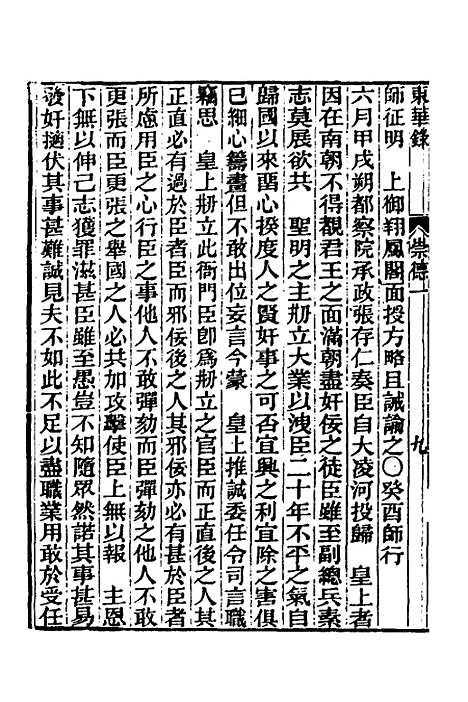 東華錄 崇德一 九
師征明 上御翔鳳閣面授方略且誡諭之○癸酉師行
六月甲戌朔都察院承政張存仁奏臣自大凌河投歸 皇上者
因在南朝不得覩君王之面滿朝盡奸佞之徒臣雖至副總兵素
志莫展欲共 聖明之主刱立大業以洩臣二十年不平之氣自
歸國以來留心揆度人之賢奸事之可否宜興之利宜除之害俱
已細心籌畫但不敢出位妄言今蒙 皇上推誠委任令司言職
竊思 皇上刱立此衙門臣卽爲刱立之官臣而正直後之人其
正直必有過於臣者臣而邪佞後之人其邪佞亦必有甚於臣者
所慮用臣之心行臣之事他人不敢彈劾而臣彈劾之他人不敢
更張而臣更張之舉國之人必共加攻擊使臣上無以報 主恩
下無以伸己志獲罪滋甚臣雖至愚豈不知隨眾然諾其事甚易
發奸擿伏其事甚難誠見夫不如此不足以盡職業用敢於受任